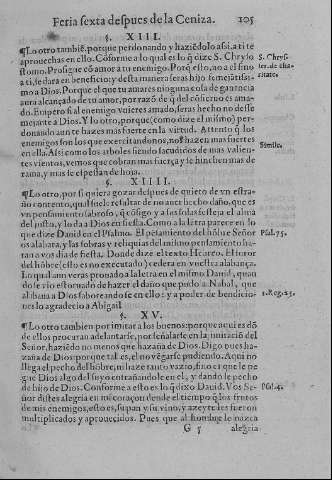 Feria sexta despues de la Ceniza. 105
§. XIII.
¶Lo otro tambiē, porque perdonando y haziēdolo assi, a ti te
aprouechas en ello. Cōforme a lo qual es lo q̄ dize S. Chryso
stomo. Prosigue cō amor a tu enemigo. Porq̄ esto, no a el sino
a ti, se dara en beneficio: y desta manera seras hijo semejātissi-
mo a Dios. Porque el que tu amares ninguna cosa de ganancia
aura alcançado de tu amor, por razō de q̄ del cōsieruo es ama-
do. Empero si al enemigo vuieres amado, seras hecho no desse
mejante a Dios. Y lo otro, porque (como dize el mismo) per-
donando aun te hazes mas fuerte en la virtud. Attento q̄ los
enemigos son los que exercitandonos, nos hazen mas fuertes
en ella. Assi como los arboles siendo sacudidos de mas valien-
tes vientos, vemos que cobran mas fuerça y se hinchen mas de
rama, y mas se espessan de hoja.
S. Chryso
ster. de cha-
ritate.
Simile.
§. XIIII.
¶Lo otro, por si quiera gozar despues de quieto de vn estra-
ño contento, qual suele resultar de no auer hecho daño, que es
vn pensamiento sabroso, q̄ cōsigo y a solas festeja el alma
del justo, y lo da a Dios en fiesta. Como a la letra parece en lo
que dize Dauid en el Psalmo. El pesamiento del hōbre Señor
os alabara, y las sobras y reliquias del mismo pensamiento ha-
ran a vos dia de fiesta. Donde dize el texto Hebreo. El furor
del hōbre (esto es no executado) redera en vuestra alabança.
Lo qual am veras prouado a la letra en el mismo Dauid, quan
do se vio estornado de hazer el daño que pudo a Nabal, que
alabaua a Dios saboreandose en ello: y a poder de bendicio-
nes lo agradecio a Abigail.
Psal. 75.
1. Reg. 25.
§. XV.
¶Lo otro tambien por imitar a los buenos: porque aqui es dō
de ellos procuran adelantarse, por señalarse en la imitaciō del
Señor, haziēdo no menos que hazaña de Dios. Digo pues ha-
zaña de Dios: porque tal es, el no vēgarse pudiendo. Aqui no
llega el pecho del hōbre, ni haze tanto vazio, sino es que le pe
gue Dios algo del suyo entrañandole en el, y dando le pecho
de hijo de Dios. Conforme a esto es lo q̄ dixo Dauid. Vos Se-
ñor distes alegria en mi coraçon desde el tiempo q̄ los frutos
de mis enemigos, esto es, su pan y su vino, y azeyte les fueron
multiplicados y aprouecidos. Pues que al hombre le nazca
Psal. 4.
G 5 alegria